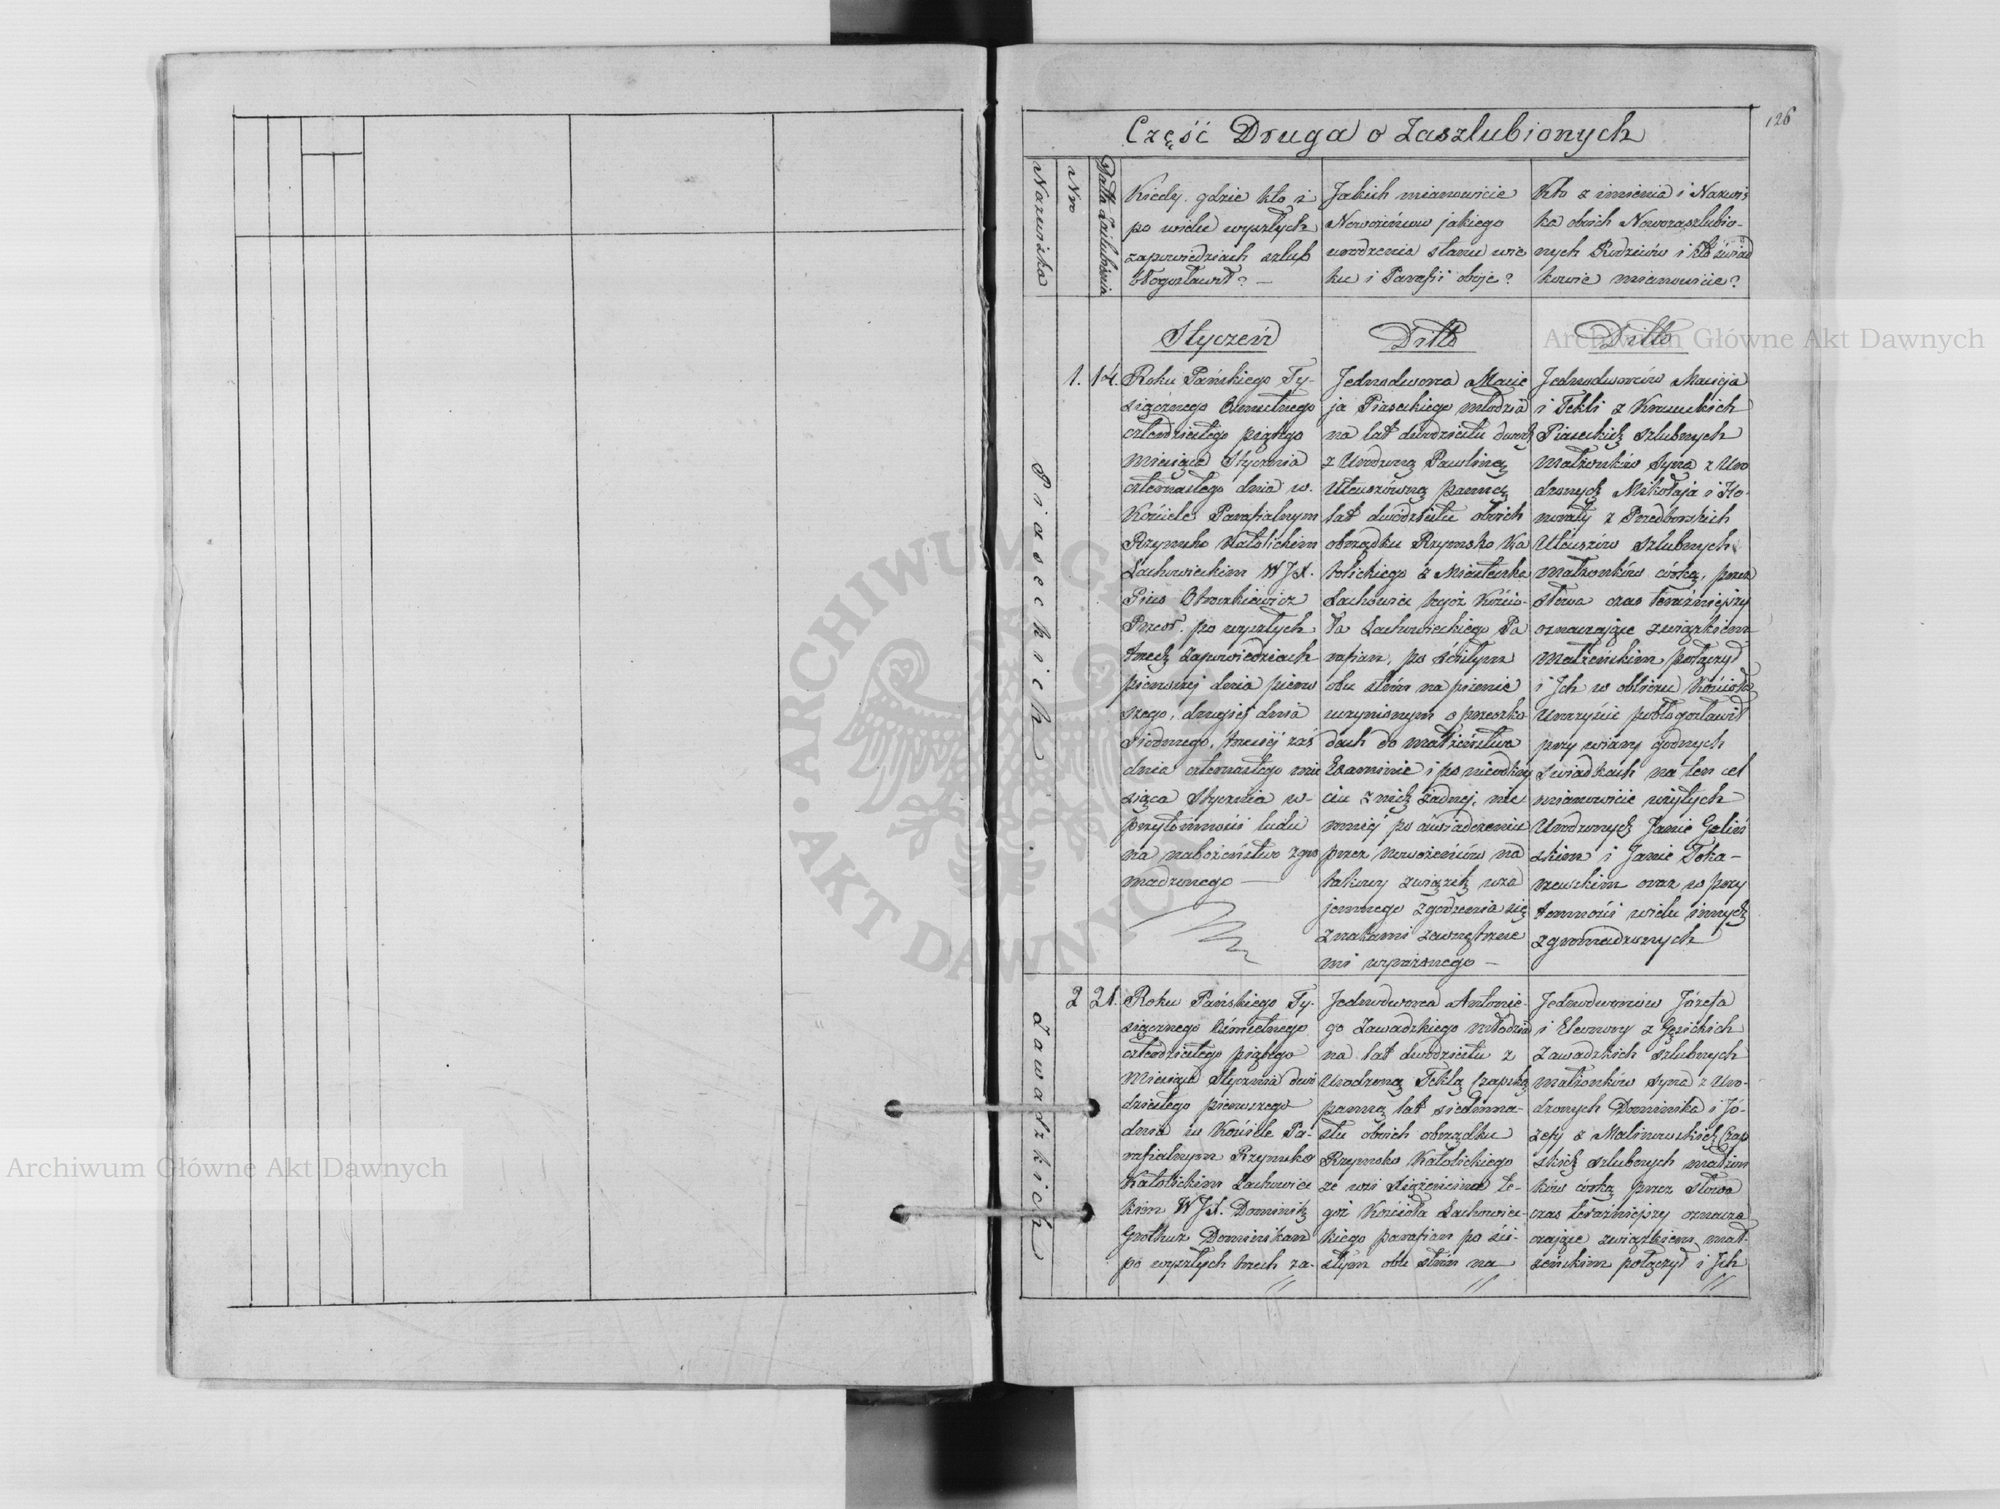 126
Część Druga o Zaszlubionych
Nazwiska
Nro
Data Zaślubienia
Kiedy, gdzie kto i
po wielu wyszłych
zapowiedziach szlub
błogosławił? —
Jakich mianowicie
Nowożeńców jakiego
urodzenia stanu wie
ku i Parafii oboje?
Kto z imienia i Nazwis
ka obojch Nowozaszlubio-
nych Rodziców i kto świad
kowie mianowicie?
Styczeń
Ditto
Ditto
Piaseckich
1. 14.
Roku Pańskiego Ty-
siącznego Ośmsetnego
czterdziestego piątego
Miesiąca Stycznia
czternastego dnia w
Kościele Parafialnym
Rzymsko Katolickim
Lachowieckim WJX.
Pius
Przeor. po wyszłych
trzech zapowiedziach
pierwszej dnia pierw
szego, drugiej dnia
siódmego, trzeciej zaś
dnia czternastego mie
siąca Stycznia w
przytomności ludu
na nabożeństwo zgro
madzonego —
Jednodworca Macie
ja Piaseckiego młodzia
na lat dwudziestu dwóch
z Urodzoną Pauliną
panną
lat dwudziestu obojch
obrządku Rzymsko Ka
tolickiego z Miasteczka
Lachowiec tegoż Kościo-
ła Lachowieckiego Pa
rafian, po ścisłym
obu stron na piśmie
uczynionym o przeszko-
dach do małżeństwa
Examinie i po nieodkry
ciu z nich żadnej, nie
mniej po oświadczeniu
przez nowożeńców na
takowy związek wza
jemnego zgodzenia się
znakami zewnętrzne
mi wyrażonego —
Jednodworców Macieja
i Tekli z
Piaseckich szlubnych
Małżonków syna z Uro
dzonych Mikołaja i Ho-
noraty z Przedborskich
szlubnych
Małżonków córką, przez
słowa czas teraźniejszy
oznaczające związkiem
Małżeńskim połączył
i Ich w obliczu Kościoła
Uroczyście pobłogosławił
przy wiary godnych
świadkach na ten cel
mianowicie użytych
Urodzonych Janie Goliń
skim i Janie Toka-
rzewskim oraz w przy
tomności wielu innych
zgromadzonych
Zawadzkich
2 21.
Roku Pańskiego Ty-
siącznego Ośmsetnego
czterdziestego piątego
Miesiąca Stycznia dwu
dziestego pierwszego
dnia w Kościele Pa-
rafialnym Rzymsko
Katolickim Lachowiec
kim WJX. Dominik
Grothuz Dominikan
po wyszłych trzech za-
Jednodworca Antonie-
go Zawadzkiego młodzia
na lat dwudziestu z
Urodzoną Teklą Czapską
panną lat siedmna-
stu obojch obrządku
Rzymsko Katolickiego
ze wsi te-
goż Kościoła Lachowiec-
kiego parafian po ści-
słym obu stron na
Jednodworców Józefa
i Eleonory z Gęsickich
Zawadzkich szlubnych
małżonków syna z Uro-
dzonych Dominika i Jó-
zefy z Malinowskich Czap
skich szlubnych małżon
ków córką przez słowa
czas teraźniejszy oznacza
czające związkiem mał-
żeńskim połączył i Ich
Archiwum Główne Akt Dawnych
Archiwum Główne Akt Dawnych